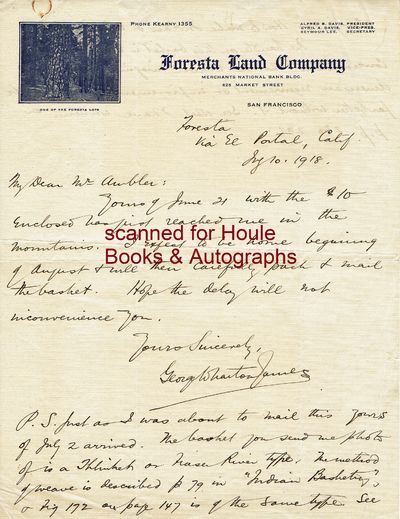 PHONE KEARNY 1355
ALFRED B. DAVIS, PRESIDENT
CYRIL A. DAVIS, VICE-PRES.
SEYMOUR LEE, SECRETARY
Foresta Land Company
MERCHANTS NATIONAL BANK BLDG.
625 MARKET STREET
SAN FRANCISCO
ONE OF THE FORESTA LOTS
Foresta
Via El Portal, Calif.
10. 1918.
My Dear Mr Ambler:
Yours of June 21 with the $10
enclosed has just reached me in the
mountains. I expect to be home beginning
of August & will then carefully pack & mail
the basket. Hope the delay will not
inconvenience you.
Yours Sincerely,
George Wharton James
P.S. Just as I was about to mail this yours
of July 2 arrived. The basket you send me photo
of is a Thlinket or Nass River type. The method
of weave is described p 79 in "Indian Basketry",
& Fig 172 on page 147 is of the same type. See
scanned for Houle
Books & Autographs